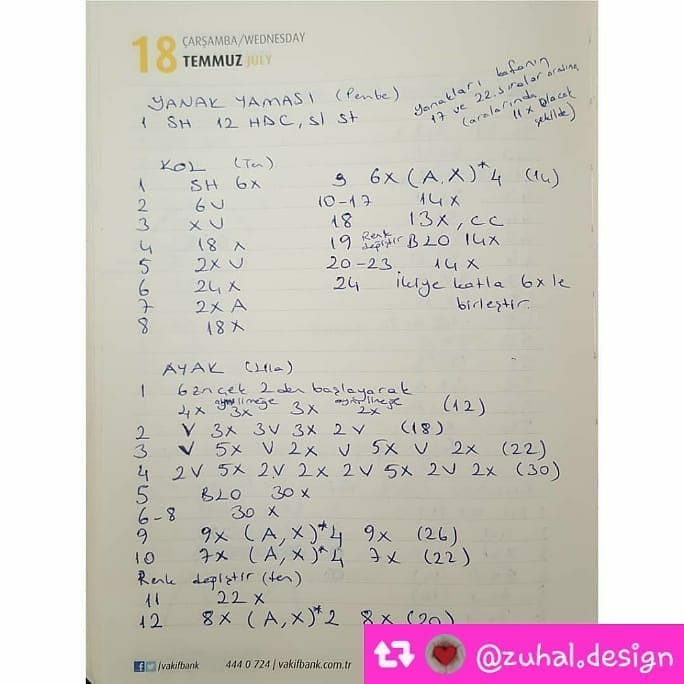 18 ÇARŞAMBA/WEDNESDAY
TEMMUZ JULY
YANAK YAMASI (Pembe)
1 SH 12 HDC, sl st
yanakları kafanın
17 ve 22. sıralar arasına
(aralarında
11 x olacak
şekilde)
KOL (Ten)
1 SH 6x
2 6V
3 x V
4 18 x
5 2x V
6 24x
7 2x A
8 18x
9 6x (A, X)*4 (14)
10-17 14x
18 13x, cc
19 Renk değiştir BLO 14x
20-23. 14x
24 ikiye katla 6x le
birleştir.
AYAK (Lila)
1 6 zinçek 2 den başlayarak
4x aynı ilmeğe 3x 3x aynı ilmeğe 2x (12)
2 V 3x 3V 3x 2V (18)
3 V 5x V 2x V 5x V 2x (22)
4 2V 5x 2V 2x 2V 5x 2V 2x (30)
5 BLO 30x
6-8 30x
9 9x (A, X)*4 9x (26)
10 7x (A, X)*4 7x (22)
Renk değiştir (ten)
11 22x
12 8x (A, X)*2 8x (20)
/vakifbank 444 0 724 | vakifbank.com.tr
@zuhal.design